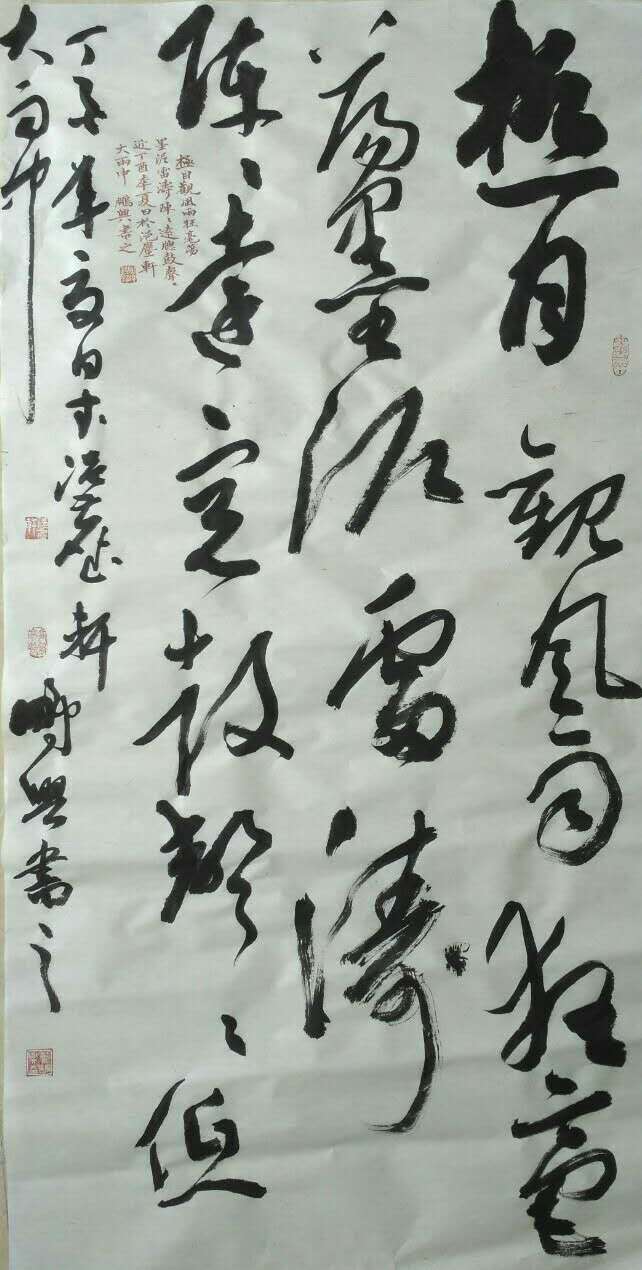 極目觀風雨狂毫
蕩墨泥雷濤
陣々遠聽鼓聲々近
極目觀風雨狂毫蕩
墨泥雷濤陣々遠聽鼓聲々
近丁酉年夏日於浥塵軒
大雨中 鵬興書之
丁酉年夏日於浥塵軒
大雨中 鵬興書之